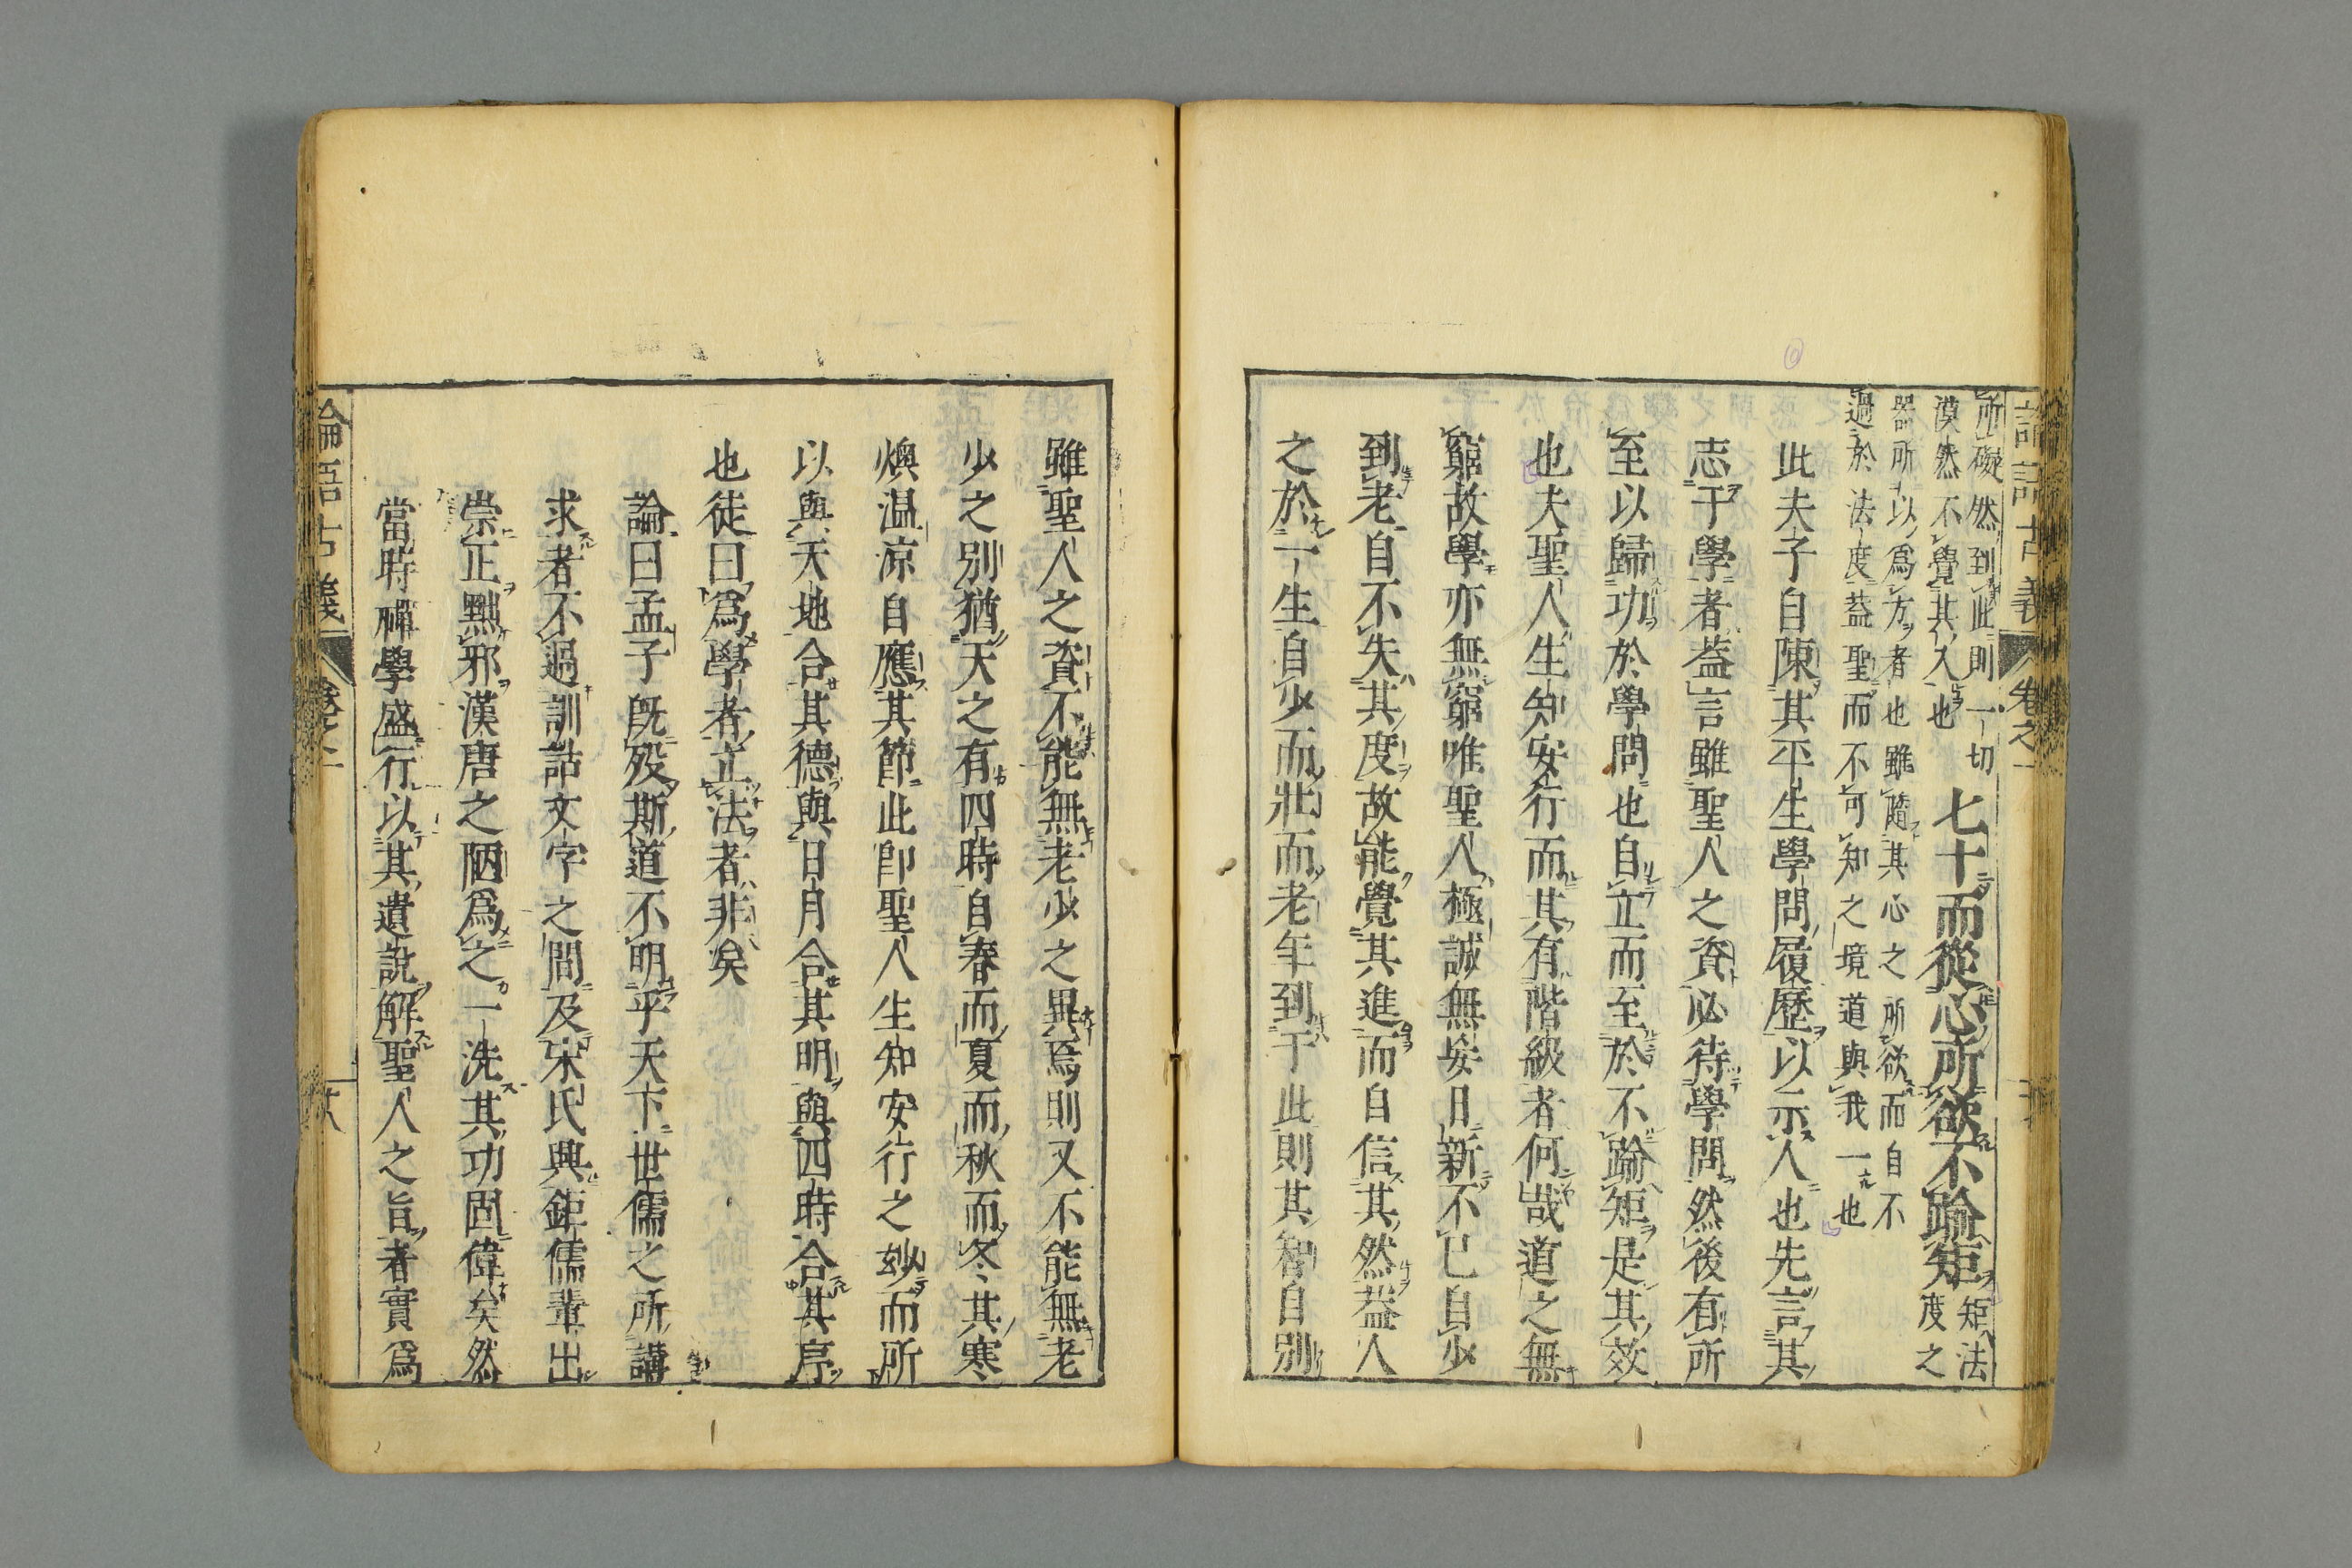 論語古義 卷之一
所礙然到此則一切
漠然不覺其入也
七十而從心所欲不踰矩
矩法
度之
器所以爲方者也雖隨其心之所欲而自不
過於法度葢聖而不可知之境道與我一也
此夫子自陳其平生學問履歷以示人也先言其
志于學者葢言雖聖人之資必待學問然後有所
至以歸功於學問也自立而至於不踰矩是其效
也夫聖人生知安行而其有階級者何哉道之無
窮故學亦無窮唯聖人極誠無妄日新不已自少
到老自不失其度故能覺其進而自信其然葢人
之於一生自少而壯而老年到于此則其智自別
雖聖人之資不能無老少之異焉則又不能無老
少之別猶天之有四時自春而夏而秋而冬其寒
燠温凉自應其節此卽聖人生知安行之妙而所
以與天地合其德與日月合其明與四時合其序
也徒曰爲學者立法者非矣
論曰孟子旣歿斯道不明乎天下世儒之所講
求者不過訓詁文字之間及宋氏興鉅儒輩出
崇正黜邪漢唐之陋爲之一洗其功固偉矣然
當時禪學盛行以其遺說解聖人之旨者實爲
論語古義 卷之一